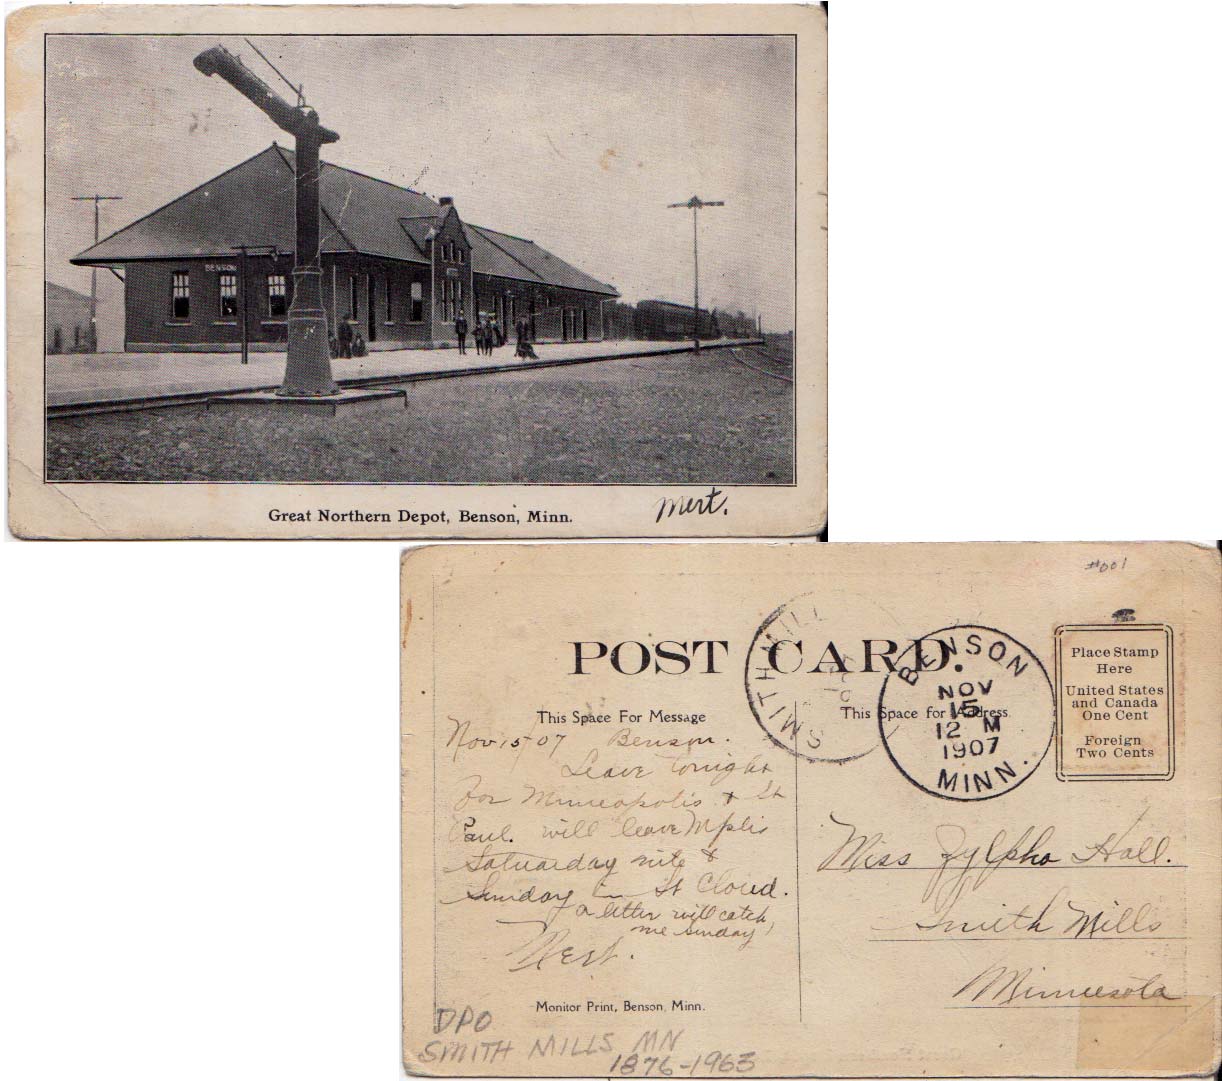 BENSON
Great Northern Depot, Benson, Minn.
Mert.
#001
POST CARD.
SMITH MILL
BENSON
NOV
15
12 M
1907
MINN.
Place Stamp
Here
United States
and Canada
One Cent
Foreign
Two Cents
This Space For Message
This Space for Address.
Nov 15-07 Benson.
Leave tonight
for Minneapolis & St
Paul. will leave Mplis
Satuarday nite &
Sunday in St Cloud.
a letter will catch
me Sunday
Mert.
Miss Zylpha Hall.
Smith Mills
Minnesota
Monitor Print, Benson, Minn.
DPO
SMITH MILLS MN
1876-1963